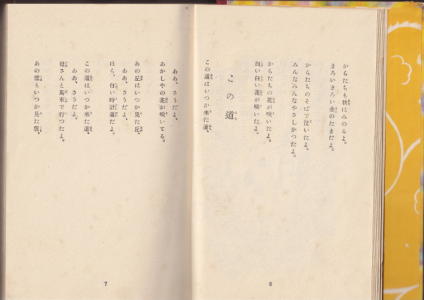 からたちも秋はみのるよ。
まろいまろい金のたまだよ。
からたちのそばで泣いたよ。
みんなみんなやさしかつたよ。
からたちの花が咲いたよ。
白い白い花が咲いたよ。
この道
この道はいつか来た道、
ああ、さうだよ、
あかしやの花が咲いてる。
あの丘はいつか見た丘、
ああ、さうだよ、
ほら、白い時計台だよ。
この道はいつか来た道、
ああ、さうだよ、
母さんと馬車で行つたよ。
あの雲もいつか見た雲、
6
7